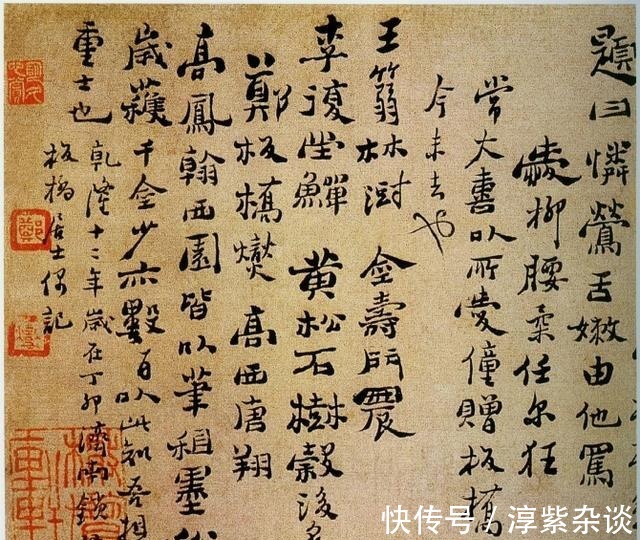 題曰憐鶯舌嫩由他罵
愛柳腰柔任尔狂
常大喜以所愛僮贈板橋
今未去也
王篛林澍 金壽門農
李復堂鱓 黄松石樹穀後名
鄭板橋燮 高西唐翔
高鳳翰西園皆以筆租墨
歲獲千金少亦數百以此知吾相
重士也
乾隆十二年歲在丁卯濟南鎖
板橋居士偶記
快传号／淳紫杂谈